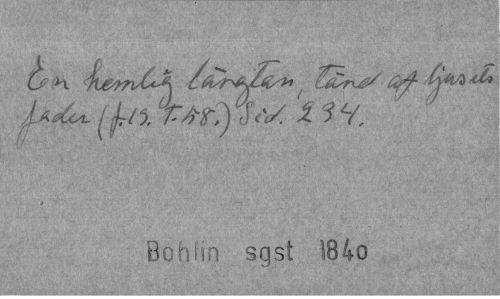 En hemlig längtan, tänd af ljusets
fader (f.19. T.58.) Sid. 234.
Bohlin sgst 1840